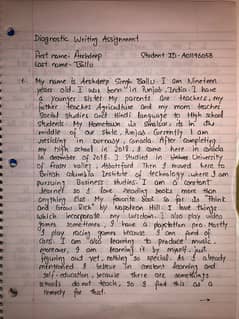 Diagnostic Writing Assignment
First name: Arshdeep Student ID- A01196058
Last name- Ballu
1. My name is Arshdeep Singh Ballu. I am Nineteen
years old. I was born in Punjab, India. I have
a younger sister. My parents are teachers, my
father teaches Agriculture and my mom teaches
Social studies and Hindi language to High school
students. My Hometown is in the
middle of our state, Punjab. Currently I am
residing in Burnaby, Canada. After completing
my high school in 2018, I came here in Canada
in december of 2018. I studied in University
of Fraser valley, Abbotsford. Then I moved here to
British Columbia Institute of technology where I am
pursuing Business studies. I am a constant
learner so I love reading books more than
anything else. My favorite book so far is "Think
and Grow Rich" By Napoleon Hill. I love things
which incorporate my wisdom. I also play video
games sometimes, I have a playstation pro. Mostly
I play racing games because I am fond of
cars. I am also learning to produce music,
moreover, I am learning it by myself, just
figuring out yet, nothing so special. As I already
mentioned I believe in constant learning and
self-education, because there are somethings
schools do not teach, so I find this as a
remedy for that.